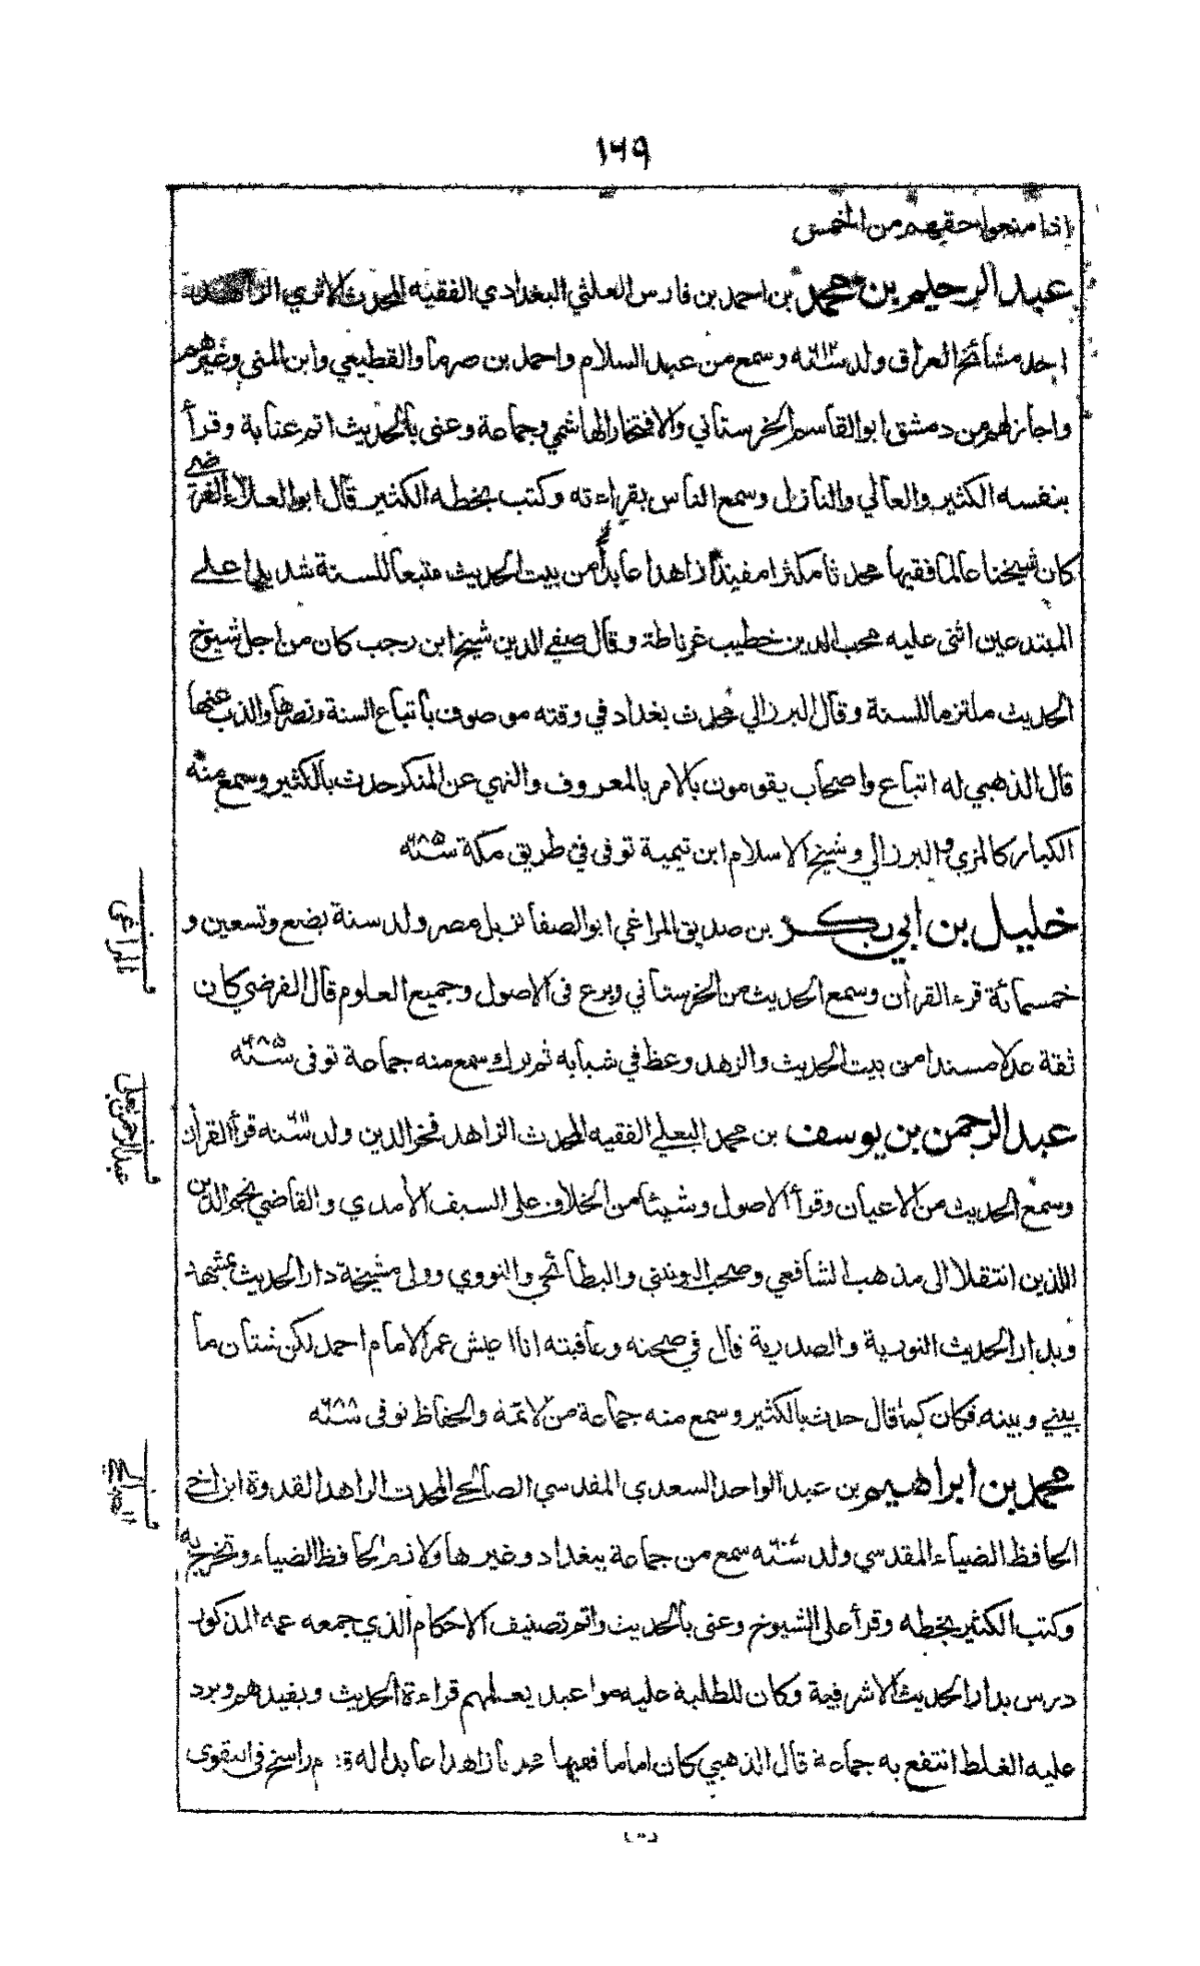 ١٦٩
إذا منعوا حقهم من الخمس
عبد الرحيم بن محمد بن احمد بن فارس العلثي البغدادي الفقيه المحدث الاثري الزاهد
احد مشائخ العراق ولد سنة ٦١٢ وسمع من عبد السلام واحمد بن صرما والقطيعي وابن المني وغيرهم
واجاز لهم من دمشق ابو القاسم الخرستاني والافتخار الهاشمي وجماعة وعنى بالحديث اتم عناية وقرأ
بنفسه الكثير والعالي والنازل وسمع الناس بقراءته وكتب بخطه الكثير قال ابو العلاء الفرضي
كان شيخنا عالما فقيها محدثا مكثرا مفيدا زاهدا عابدا من بيت الحديث متبعا للسنة شديدا على
المبتدعين اثنى عليه محب الدين خطيب غرناطة وقال صفي الدين شيخ ابن رجب كان من اجل شيوخ
الحديث ملتزما للسنة وقال البرزالي محدث بغداد في وقته موصوف باتباع السنة ونصرها والذب عنها
قال الذهبي له اتباع واصحاب يقومون بالامر بالمعروف والنهي عن المنكر حدث بالكثير وسمع منه
الكبار كالمزي والبرزالي وشيخ الاسلام ابن تيمية توفى في طريق مكة سنة ٦٨٥
خليل بن ابي بكر بن صديق المراغي ابو الصفا نزيل مصر ولد سنة بضع وتسعين و
خمسمائة قرء القرأن وسمع الحديث من الخرستاني وبرع فى الاصول وجميع العلوم قال الفرضي كان
ثقة عدلا مسندا من بيت الحديث والزهد وعظ في شبابه ثم ترك سمع منه جماعة توفى سنة ٦٨٥
عبد الرحمن بن يوسف بن محمد البعلي الفقيه المحدث الزاهد فخر الدين ولد سنة ٦١١ قرأ القرأن
وسمع الحديث من الاعيان وقرأ الاصول وشيئا من الخلاف على السيف الأمدي والقاضي نجم الدين
اللذين انتقلا الى مذهب الشافعي وصحب اليونيني والبطائحي والنووي وولى مشيخة دار الحديث بمشهد
وبدار الحديث النورية والصدرية قال في صحته وعافيته انا اعيش عمر الامام احمد لكن شتان ما
بيني وبينه فكان كما قال حدث بالكثير وسمع منه جماعة من الائمة والحفاظ توفى سنة ٦٨٨
محمد بن ابراهيم بن عبد الواحد السعدي المقدسي الصالحي المحدث الزاهد القدوة ابن اخ
الحافظ الضياء المقدسي ولد سنة سمع من جماعة ببغداد وغيرها ولازم الحافظ الضياء وتخرج به
وكتب الكثير بخطه وقرأ على الشيوخ وعنى بالحديث واتم تصنيف الاحكام الذي جمعه عمه المذكور
درس بدار الحديث الاشرفية وكان للطلبة عليه مواعيد يعلمهم قراءة الحديث ويفيدهم ويرد
عليه الغلط انتفع به جماعة قال الذهبي كان اماما فقيها محدثا زاهدا عابدا له قدم راسخ فى التقوى
المراغى
عبد الرحمن بعلى